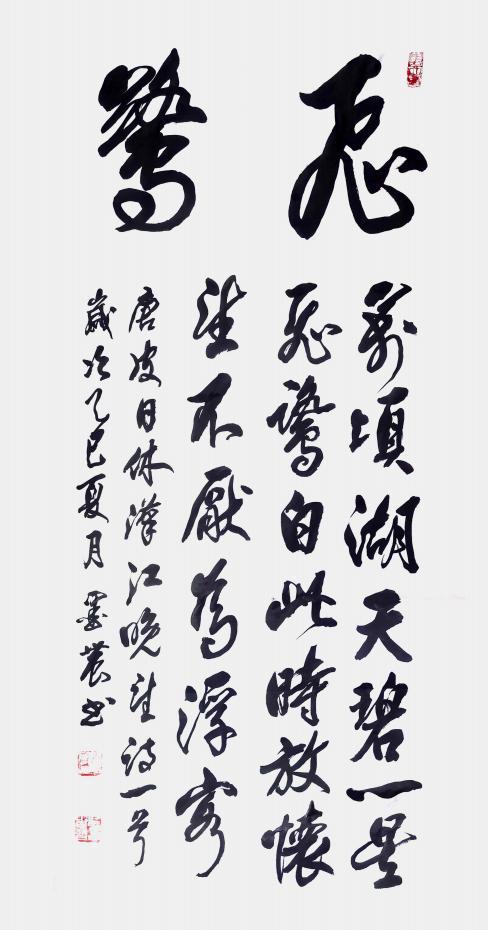 飛鷺
萬頃湖天碧一星
飛鷺白此時放懷
望不厭為浮客
唐皮日休江望詩一首
歲次乙巳夏月 墨農書